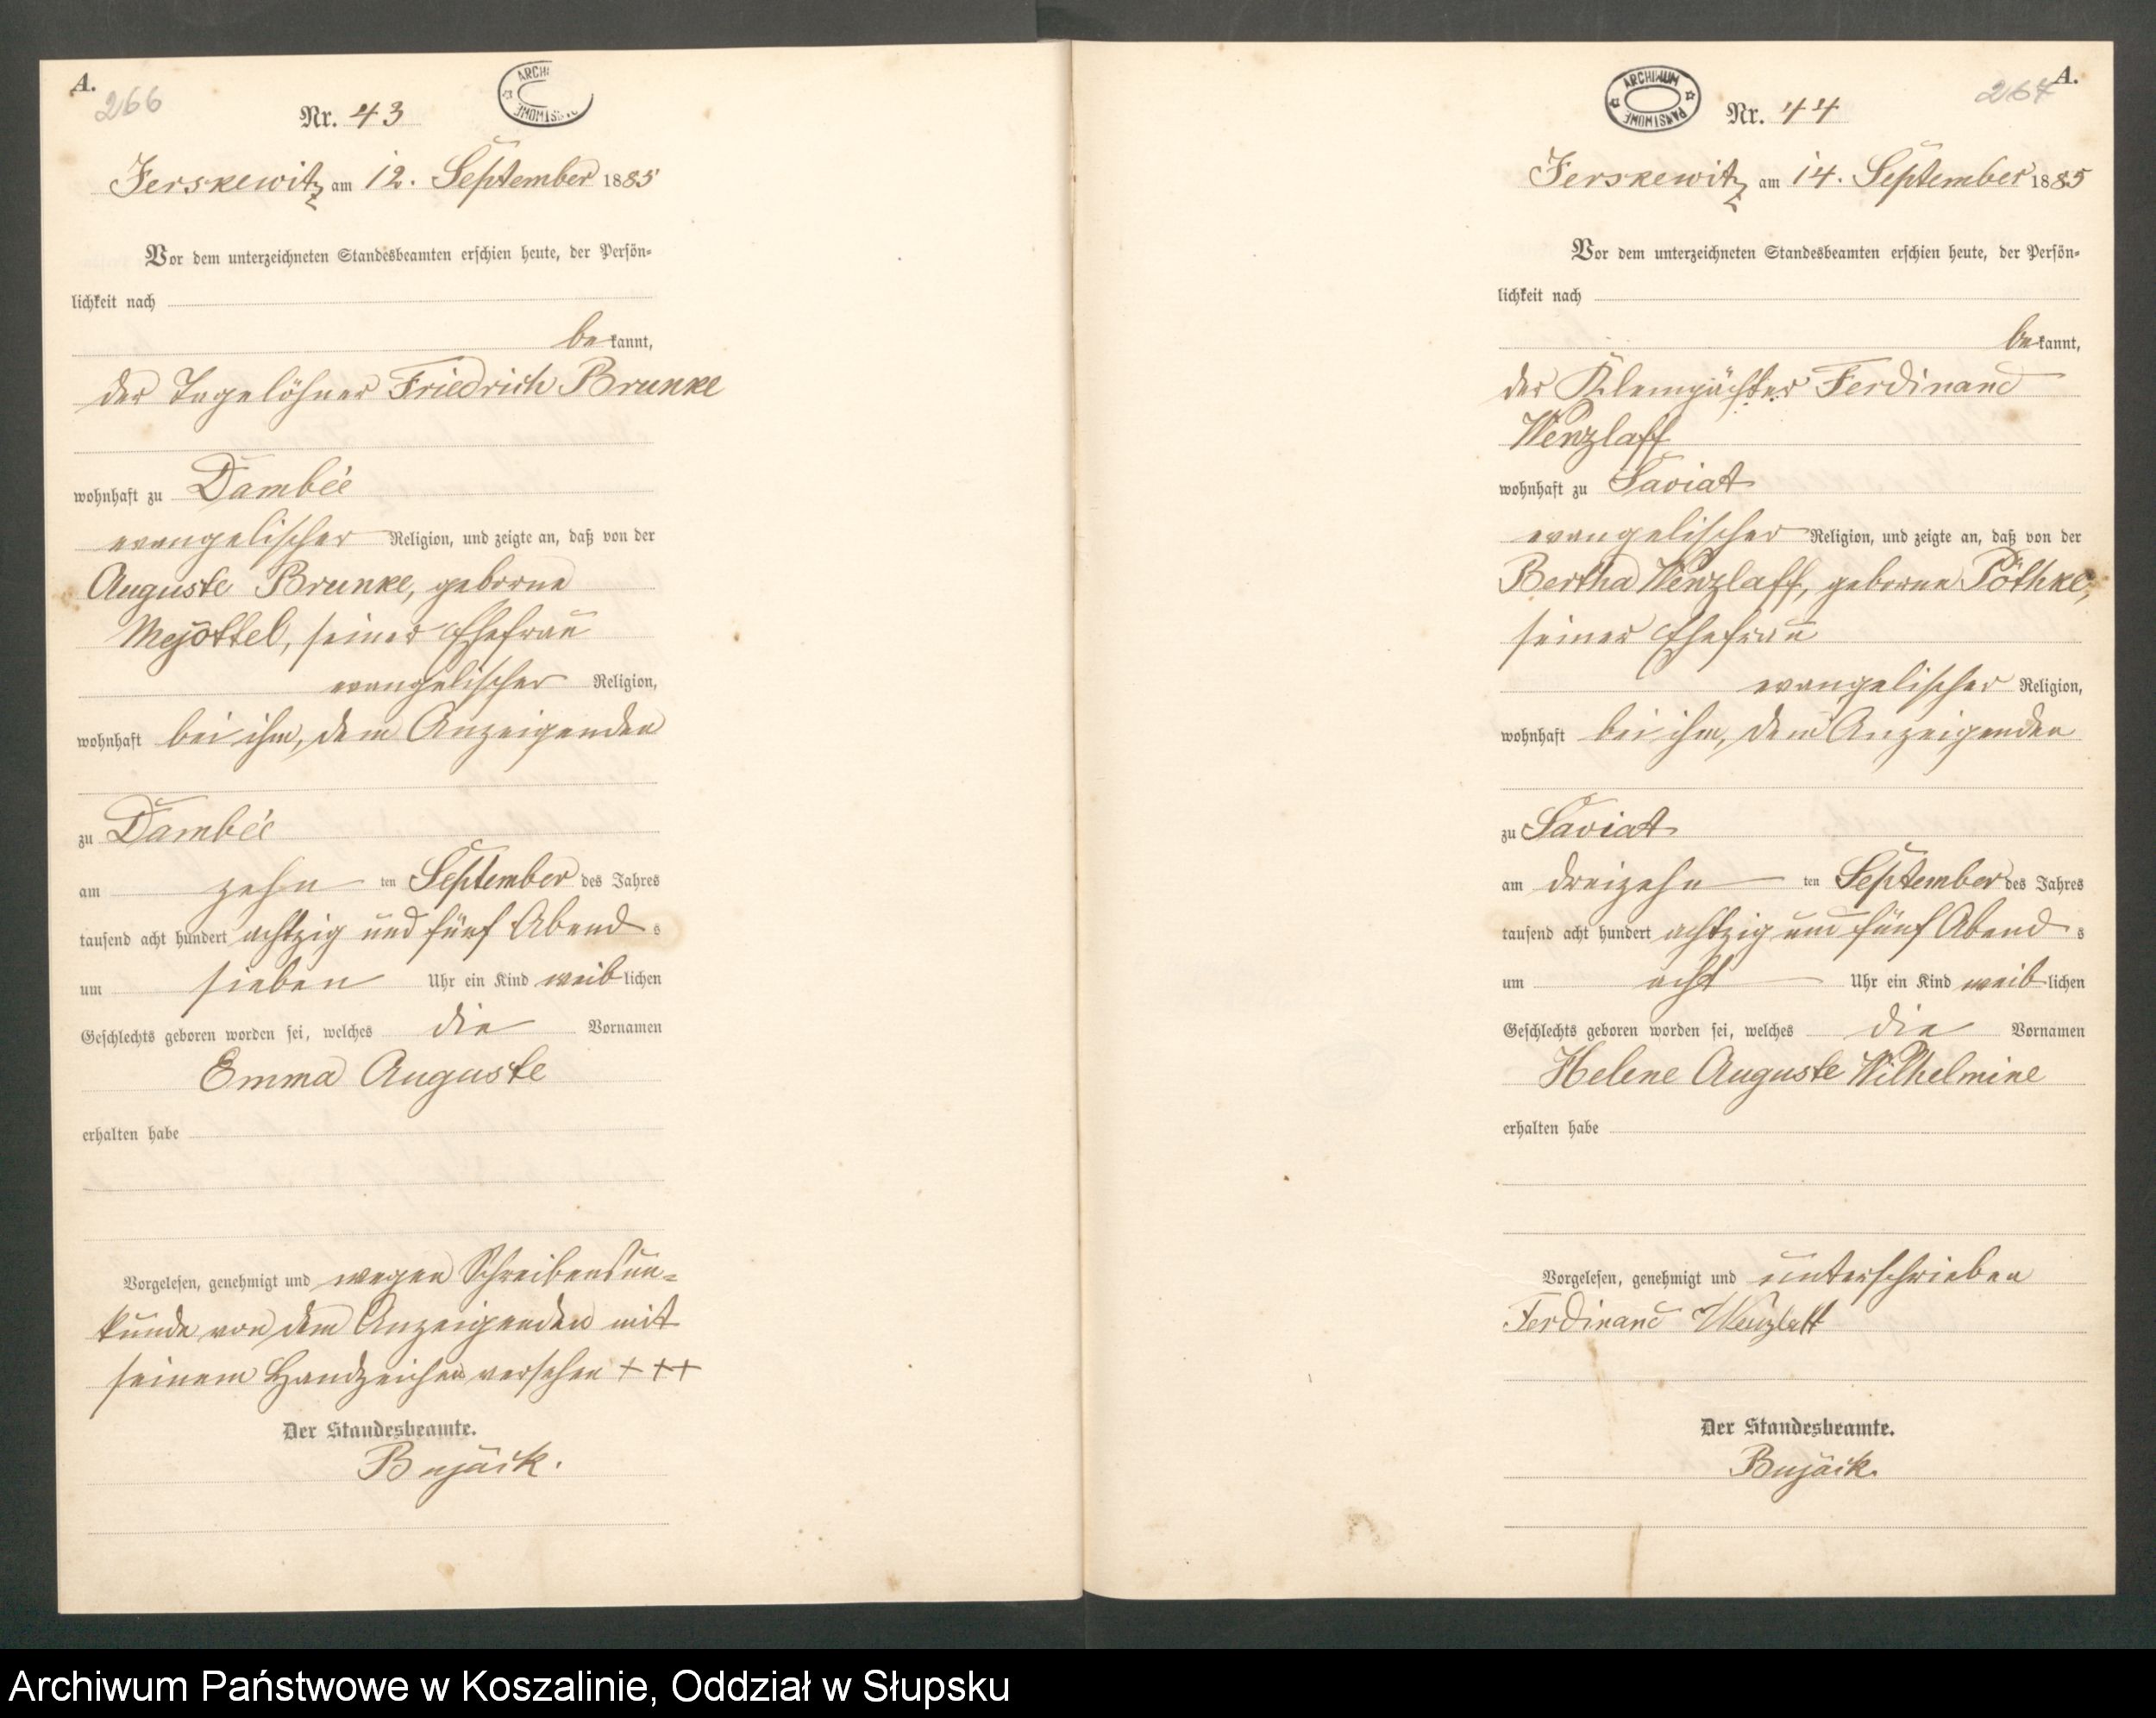 A.
266
ARCHI
Nr. 43
Jerskewitz am 12. September 1885
Vor dem unterzeichneten Standesbeamten erschien heute, der Persön-
lichkeit nach
bekannt,
der Tagelöhner Friedrich Brunke
wohnhaft zu Dambée
evangelischer Religion, und zeigte an, daß von der
Auguste Brunke, geborne
seiner Ehefrau
evangelischer Religion,
wohnhaft bei ihm, dem Anzeigenden
zu Dambée
am zehn ten September des Jahres
tausend acht hundert achtzig und fünf Abend s
um sieben Uhr ein Kind weiblichen
Geschlechts geboren worden sei, welches die Vornamen
Emma Auguste
erhalten habe
Vorgelesen, genehmigt und wegen Schreibensun-
kunde von dem Anzeigenden mit
seinem Handzeichen versehen + + +
Der Standesbeamte.
Bujäck.
A.
267
ARCHIWUM PAŃSTWOWE
Nr. 44
Jerskewitz am 14. September 1885
Vor dem unterzeichneten Standesbeamten erschien heute, der Persön-
lichkeit nach
bekannt,
der Kleinpächter Ferdinand
Wenzlaff
wohnhaft zu Saviat
evangelischer Religion, und zeigte an, daß von der
Bertha Wenzlaff, geborne Pöthke,
seiner Ehefrau
evangelischer Religion,
wohnhaft bei ihm, dem Anzeigenden
zu Saviat
am dreizehn ten September des Jahres
tausend acht hundert achtzig und fünf Abend s
um acht Uhr ein Kind weiblichen
Geschlechts geboren worden sei, welches die Vornamen
Helene Auguste Wilhelmine
erhalten habe
Vorgelesen, genehmigt und unterschrieben
Ferdinand Wenzlaff
Der Standesbeamte.
Bujäck.
Archiwum Państwowe w Koszalinie, Oddział w Słupsku